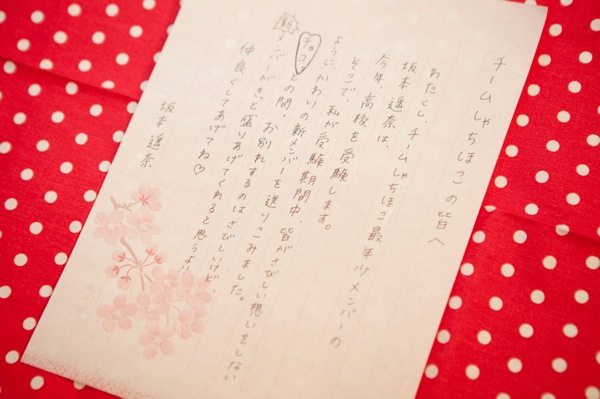 チームしゃちほこの皆へ
わたくし、チームしゃちほこ最年少メンバーの
坂本遥奈は、
今年、高校を受験します。
そこで、私が受験期間中、皆がさびしい想いをしない
よういかわりの新メンバーを送りこみました。
チョコとの間、お別れするのはさびしいけど、
新メンバーがきっと盛りあげてくれると思うよ!!
仲良くしてあげてね♡
坂本遥奈